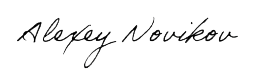 Alexey Novikov